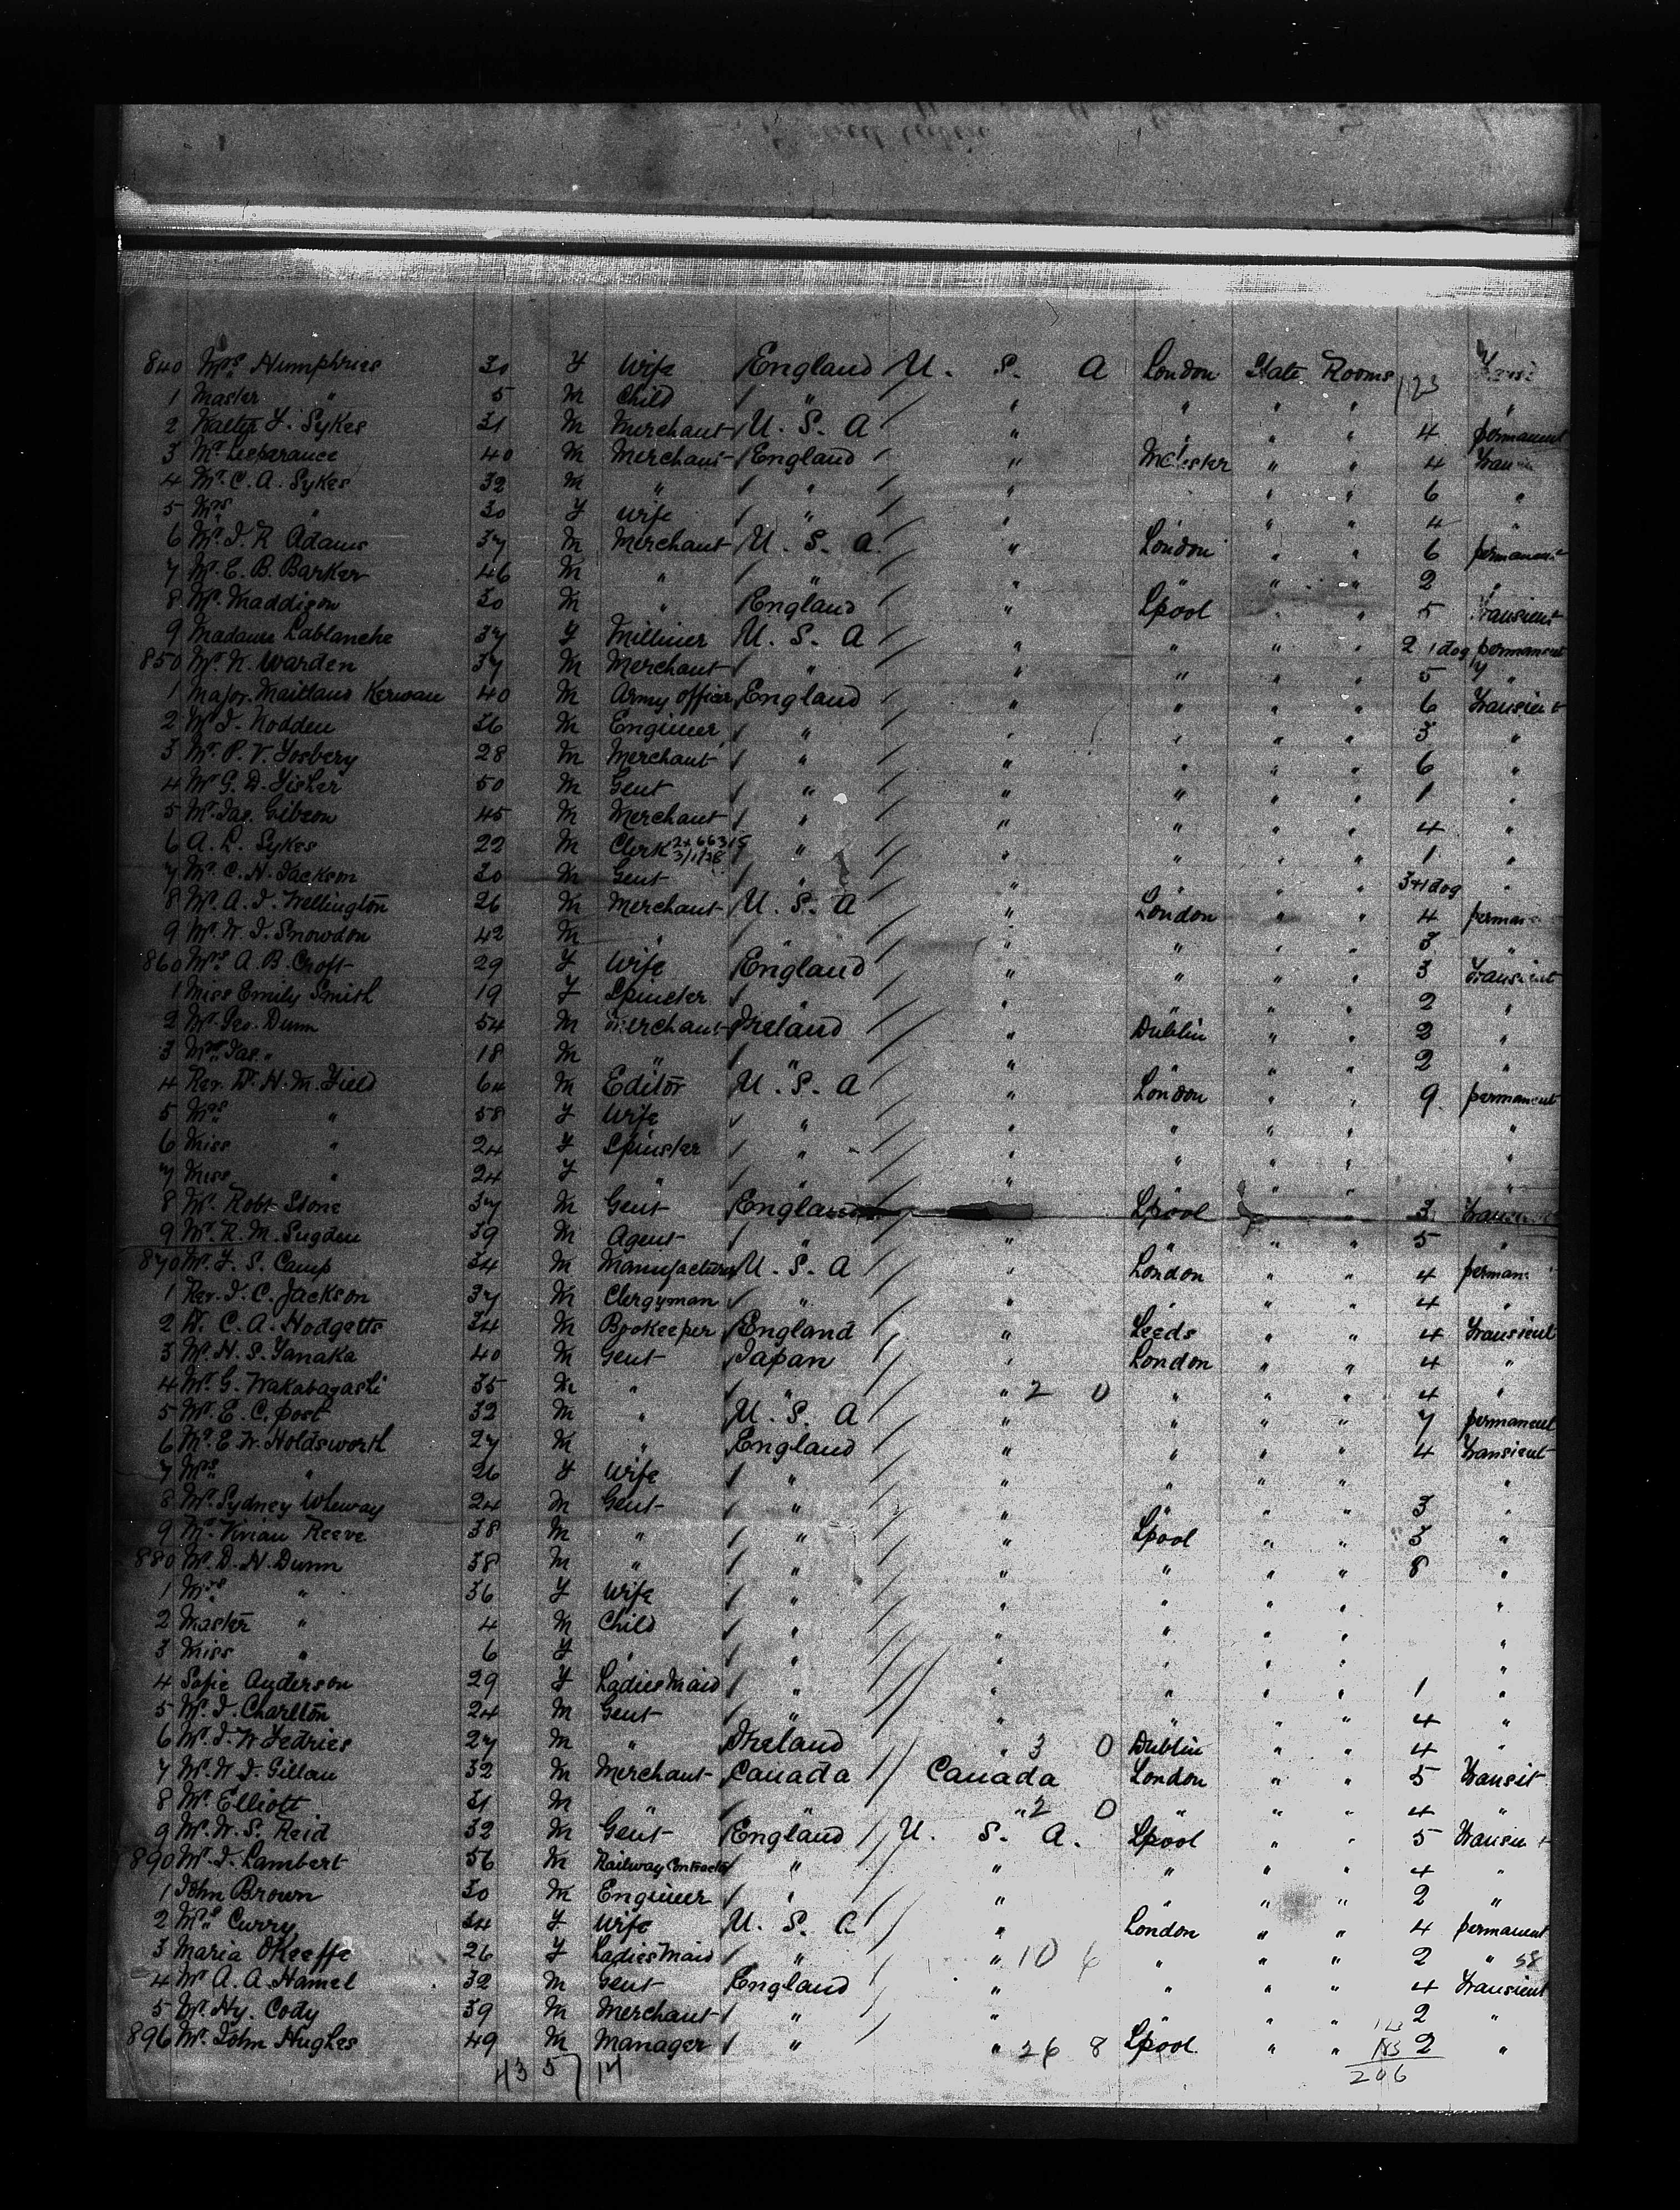 840 Mrs. Humphries 30 F Wife England U. S. A London State Rooms 123
1 Master " 5 M Child " " " " " "
2 Walter F. Sykes 31 M Merchant U. S. A " " " " 4 permanent
3 Mr. Lesperance 40 M Merchant England " McLester " " 4 Trans
4 Mr. C. A. Sykes 32 M " " " " " 6 "
5 Mrs. " 30 F Wife " " " " 4 "
6 Mr. J. R Adams 37 M Merchant U. S. A. " London " " 6 permanent
7 Mr. E. B. Barker 46 M " " " " " " 2 "
8 Mr. Maddison 30 M " England " Lpool " " 5 Transient
9 Madame Lablanche 37 F Milliner U. S. A " " " " 2 1 dog permanent
850 Mr. N. Warden 37 M Merchant " " " " " 5 "
1 Major Maitland Kerwan 40 M Army Officer England " " " " 6 Transient
2 Mr. J. Nodden 36 M Engineer " " " " " 3 "
3 Mr. P. V. Fosbery 28 M Merchant " " " " " 6 "
4 Mr G. D. Fisher 50 M Gent " " " " " 1 "
5 Mr. Jas. Gibson 45 M Merchant " " " " " 4 "
6 A. L. Sykes 22 M Clerk 2x66315 3/1/38 " " " " " 1 "
7 Mr. C. H. Jackson 30 M Gent " " " " " 3+1 dog "
8 Mr. A. J. Wellington 26 M Merchant U. S. A " London " " 4 perman
9 Mr. W. J. Snowdon 42 M " " " " " " 3 "
860 Mrs. A. B. Croft 29 F Wife England " " " " 3 Transient
1 Miss Emily Smith 19 F Spinster " " " " " 2 "
2 Mr. Geo. Dunn 54 M Merchant Ireland " Dublin " " 2 "
3 Mr. Jas. " 18 M " " " " " " 2 "
4 Rev. D. H. M. Field 64 M Editor U. S. A " London " " 9 permanent
5 Mrs. " 58 F Wife " " " " " "
6 Miss " 24 F Spinster " " " " " "
7 Miss " 24 F " " " " " " "
8 Mr. Robt Stone 37 M Gent England Lpool " 3 Transient
9 Mr. R. M. Sugden 39 M Agent " " " " " 5 "
870 Mr. F. S. Camp 34 M Manufacturer U. S. A " London " " 4 perman
1 Rev. J. C. Jackson 37 M Clergyman " " " " " 4 "
2 D. C. A. Hodgetts 34 M Bookeeper England " Leeds " " 4 Transient
3 Mr. H. S. Tanaka 40 M Gent Japan " London " " 4 "
4 Mr. G. Wakabayashi 35 M " " " 2 0 " " " 4 "
5 Mr. E. C. post 32 M " U. S. A " " " " 7 permanent
6 Mr. E. W. Holdsworth 27 M " England " " " " 4 Transient
7 Mrs. " 26 F Wife " " " " " "
8 Mr. Sydney Wheway 24 M Gent " " " " " 3 "
9 Mr. Vivian Reeve 38 M " " " Lpool " " 3 "
880 Mr. D. H. Dunn 38 M " " " " " " 8 "
1 Mrs. " 36 F Wife " " " " " "
2 Master " 4 M Child " " " " " "
3 Miss " 6 F " " " " " " "
4 Sofie Anderson 29 F Ladies Maid " " " " " 1 "
5 Mr. J. Charlton 24 M Gent " " " " " 4 "
6 Mr. J. W. Fedries 27 M " Ireland " 3 0 Dublin " " 4 "
7 Mr. W. J. Gillan 32 M Merchant Canada Canada London " " 5 Transit
8 Mr. Elliott 31 M " " " 2 0 " " " 4 "
9 Mr. W. S. Reid 32 M Gent England U. S. A. Lpool " " 5 Transient
890 Mr. J. Lambert 56 M Railway Contractor " " " " " 4 "
1 John Brown 30 M Engineer " " " " " 2 "
2 Mrs. Curry 34 F Wife U. S. A " London " " 4 permanent
3 Maria OKeeffe 26 F Ladies Maid " " 10 6 " " " 2 " 58
4 Mr A. A. Hamel 32 M Gent England " " " " 4 Transient
5 Mr. Hy. Cody 39 M Merchant " " " " " 2 "
896 Mr. John Hughes 49 M Manager " " 26 8 Lpool " " 2 "
43 57 14
123
206